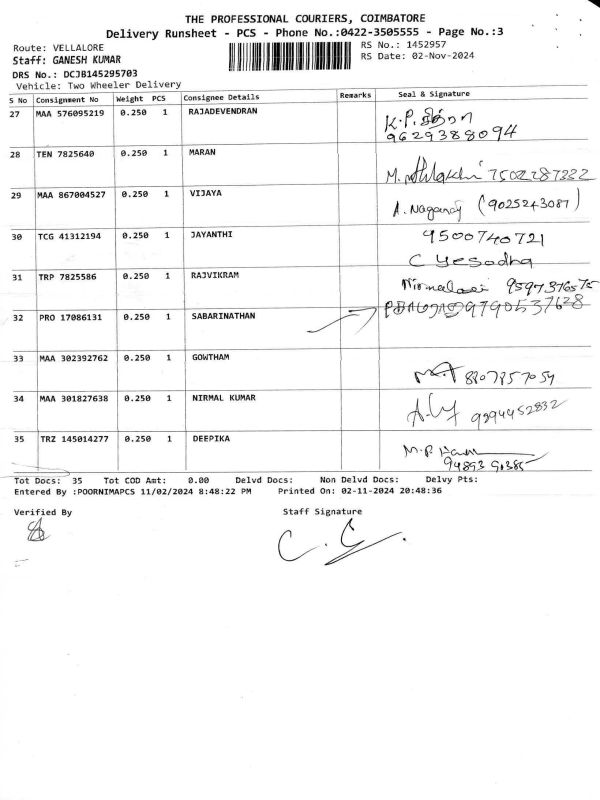 THE PROFESSIONAL COURIERS, COIMBATORE
Delivery Runsheet - PCS - Phone No.:0422-3505555 - Page No.:3
Route: VELLALORE
RS No.: 1452957
Staff: GANESH KUMAR
RS Date: 02-Nov-2024
DRS No.: DCJB145295703
Vehicle: Two Wheeler Delivery
S No Consignment No Weight PCS Consignee Details Remarks Seal & Signature
27 MAA 576095219 0.250 1 RAJADEVENDRAN K.P. சித்ரா
9629388094
28 TEN 7825640 0.250 1 MARAN
M. 7502287222
29 MAA 867004527 0.250 1 VIJAYA
A. Nagaraj (9025243087)
30 TCG 41312194 0.250 1 JAYANTHI 9500740721
C Yesodha
31 TRP 7825586 0.250 1 RAJVIKRAM 9597376575
32 PRO 17086131 0.250 1 SABARINATHAN 9790537628
33 MAA 302392762 0.250 1 GOWTHAM
8807857054
34 MAA 301827638 0.250 1 NIRMAL KUMAR
9994452832
35 TRZ 145014277 0.250 1 DEEPIKA M.P.
94893 90385
Tot Docs: 35 Tot COD Amt: 0.00 Delvd Docs: Non Delvd Docs: Delvy Pts:
Entered By :POORNIMAPCS 11/02/2024 8:48:22 PM Printed On: 02-11-2024 20:48:36
Verified By Staff Signature